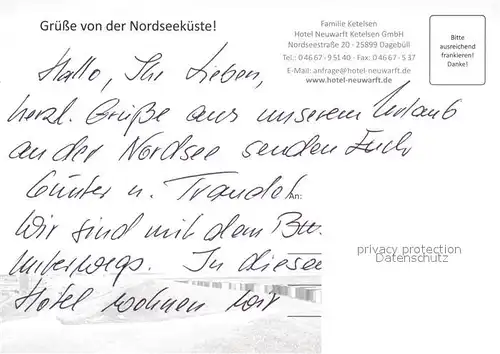 Grüße von der Nordseeküste!
Familie Ketelsen
Hotel Neuwarft Ketelsen GmbH
Nordseestraße 20 · 25899 Dagebüll
Tel.: 0 46 67 - 9 51 40 · Fax: 0 46 67 - 5 37
E-Mail: anfrage@hotel-neuwarft.de
www.hotel-neuwarft.de
Bitte
ausreichend
frankieren!
Danke!
Hallo, Ihr Lieben,
herzl. Grüße aus unserem Urlaub
an der Nordsee senden Euch
Günter u. Traudel.
An:
Wir sind mit dem
unterwegs. In diesem
Hotel wohnen wir
privacy protection
Datenschutz